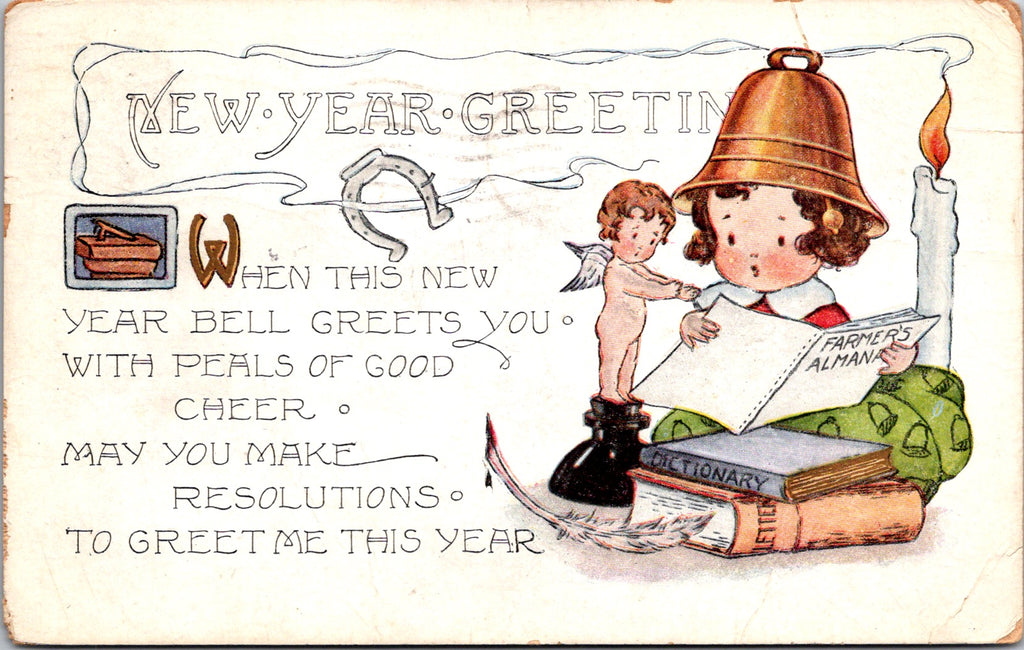 NEW·YEAR·GREETIN
WHEN THIS NEW
YEAR BELL GREETS YOU
WITH PEALS OF GOOD
CHEER
MAY YOU MAKE
RESOLUTIONS
TO GREET ME THIS YEAR
FARMER'S
ALMANA
DICTIONARY
LETTER